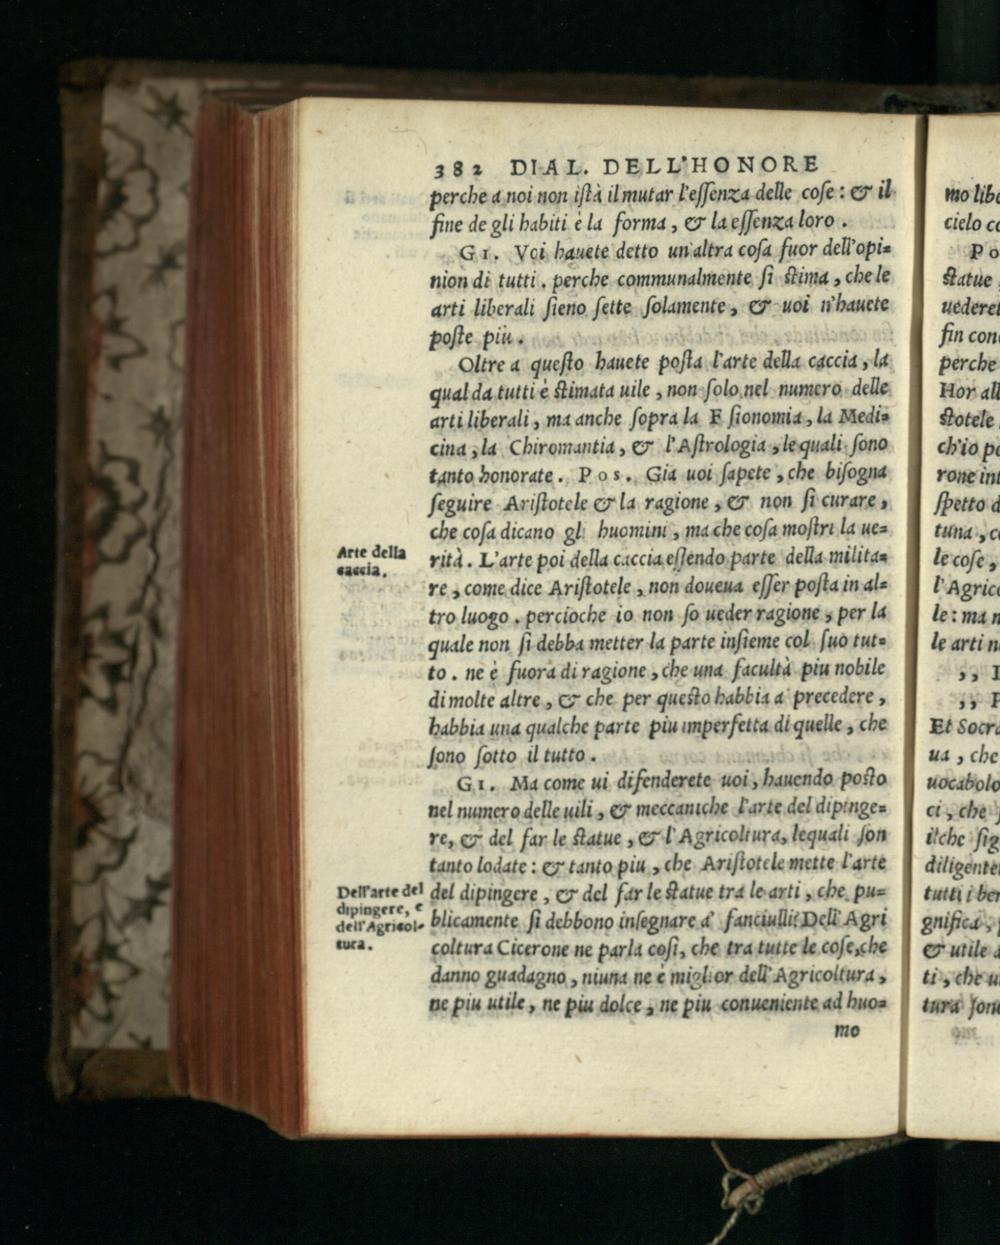 382 DIAL. DELL'HONORE
perche a noi non istà il mutar l'essenza delle cose: & il
fine de gli habiti è la forma, & la essenza loro.
GI. Voi hauete detto un'altra cosa fuor dell'opi=
nion di tutti. perche communalmente si stima, che le
arti liberali sieno sette solamente, & uoi n'hauete
poste più.
Oltre a questo hauete posta l'arte della caccia, la
qual da tutti è stimata uile, non solo nel numero delle
arti liberali, ma anche sopra la Fisionomia, la Medi=
cina, la Chiromantia, & l'Astrologia, le quali sono
tanto honorate. Pos. Già uoi sapete, che bisogna
seguire Aristotele & la ragione, & non si curare,
che cosa dicano gli huomini, ma che cosa mostri la ue=
Arte della
caccia.
rità. L'arte poi della caccia essendo parte della milita=
re, come dice Aristotele, non doueua esser posta in al=
tro luogo. percioche io non so ueder ragione, per la
quale non si debba metter la parte insieme col suo tut=
to. ne è fuora di ragione, che una facultà piu nobile
di molte altre, & che per questo habbia a precedere,
habbia una qualche parte piu imperfetta di quelle, che
sono sotto il tutto.
GI. Ma come ui difenderete uoi, hauendo posto
nel numero delle uili, & meccaniche l'arte del dipinge=
re, & del far le statue, & l'Agricoltura, lequali son
tanto lodate: & tanto piu, che Aristotele mette l'arte
Dell'arte del
dipingere, e
dell'Agricol-
tura.
del dipingere, & del far le statue tra le arti, che pu=
blicamente si debbono insegnare a' fanciulli? Dell'Agri
coltura Cicerone ne parla così, che tra tutte le cose, che
danno guadagno, niuna ne è miglior dell'Agricoltura,
ne piu utile, ne piu dolce, ne piu conueniente ad huo=
mo
mo libe
cielo co
Po
statue
uederet
fin con
perche
Hor all
stotele
ch'io po
rone int
spetto d
tuna, co
le cose,
l'Agrico
le: ma n
le arti n
,,
,,
Et Socra
ua, che
uocabolo
ci, che
ilche sig
diligente
tutti i ben
gnifica,
& utile a
ti, che u
tura sono